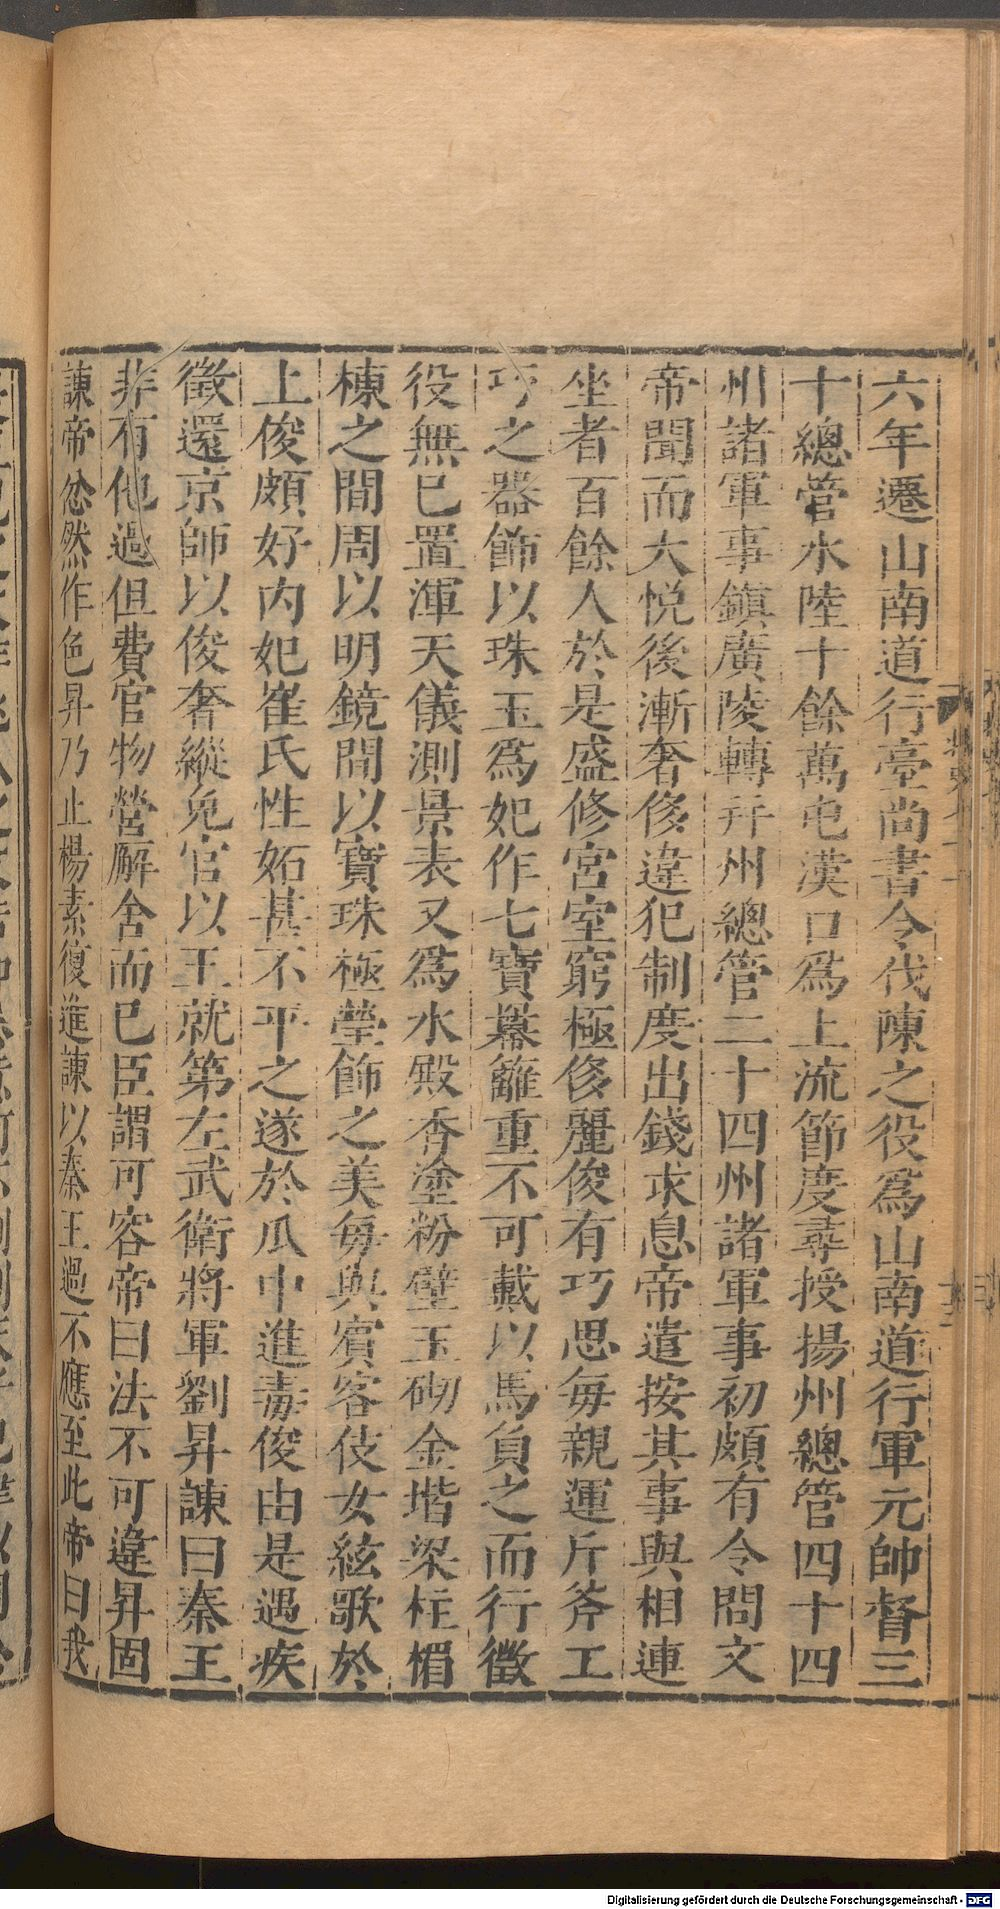 六年遷山南道行臺尚書令伐陳之役爲山南道行軍元帥督三
十總管水陸十餘萬屯漢口爲上流節度尋授揚州總管四十四
州諸軍事鎮廣陵轉并州總管二十四州諸軍事初頗有令問文
帝聞而大悦後漸奢侈違犯制度出錢求息帝遣按其事與相連
坐者百餘人於是盛修宮室窮極侈麗俊有巧思每親運斤斧工
巧之器飾以珠玉爲妃作七寶羃籬重不可戴以馬負之而行徵
役無已置渾天儀測景表又爲水殿香塗粉壁玉砌金堦梁柱楣
棟之間周以明鏡間以寶珠極瑩飾之美每與賓客伎女絃歌於
上俊頗好内妃崔氏性妬甚不平之遂於瓜中進毒俊由是遇疾
徵還京師以俊奢縱免官以王就第左武衛將軍劉昇諫曰秦王
非有他過但費官物營廨舍而已臣謂可容帝曰法不可違昇固
諫帝忿然作色昇乃止楊素復進諫以秦王過不應至此帝曰我
Digitalisierung gefördert durch die Deutsche Forschungsgemeinschaft - DFG